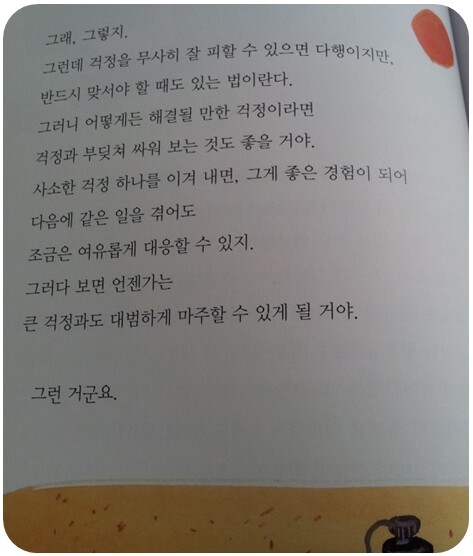 그래, 그렇지.
그런데 걱정을 무사히 잘 피할 수 있으면 다행이지만,
반드시 맞서야 할 때도 있는 법이란다.
그러니 어떻게든 해결될 만한 걱정이라면
걱정과 부딪쳐 싸워 보는 것도 좋을 거야.
사소한 걱정 하나를 이겨 내면, 그게 좋은 경험이 되어
다음에 같은 일을 겪어도
조금은 여유롭게 대응할 수 있지.
그러다 보면 언젠가는
큰 걱정과도 대범하게 마주할 수 있게 될 거야.
그런 거군요.